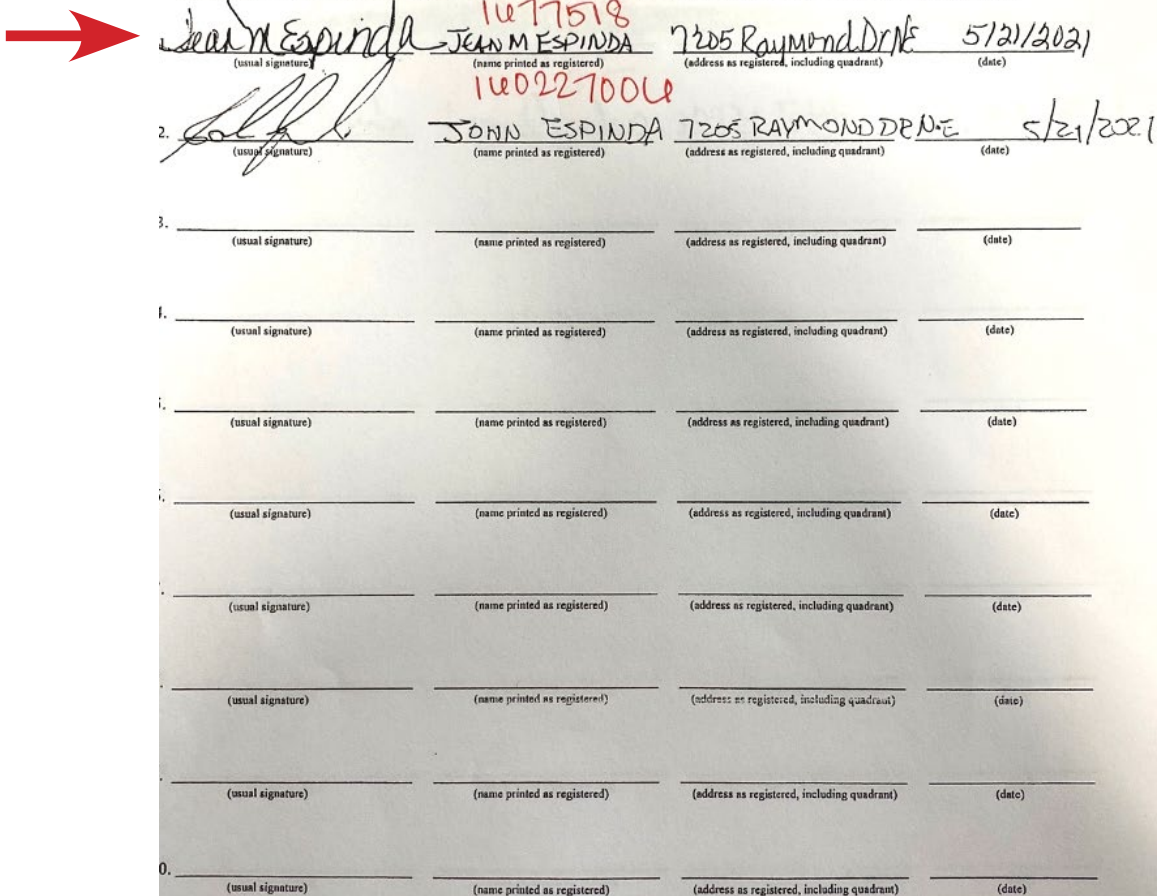 1677518
Jean M Espinda JEAN M ESPINDA 7205 Raymond Dr NE 5/21/2021
(usual signature) (name printed as registered) (address as registered, including quadrant) (date)
160227006
2. JOHN ESPINDA 7205 RAYMOND DR N.E 5/21/2021
(usual signature) (name printed as registered) (address as registered, including quadrant) (date)
3.
(usual signature) (name printed as registered) (address as registered, including quadrant) (date)
(usual signature) (name printed as registered) (address as registered, including quadrant) (date)
(usual signature) (name printed as registered) (address as registered, including quadrant) (date)
(usual signature) (name printed as registered) (address as registered, including quadrant) (date)
(usual signature) (name printed as registered) (address as registered, including quadrant) (date)
(usual signature) (name printed as registered) (address as registered, including quadrant) (date)
(usual signature) (name printed as registered) (address as registered, including quadrant) (date)
0.
(usual signature) (name printed as registered) (address as registered, including quadrant) (date)